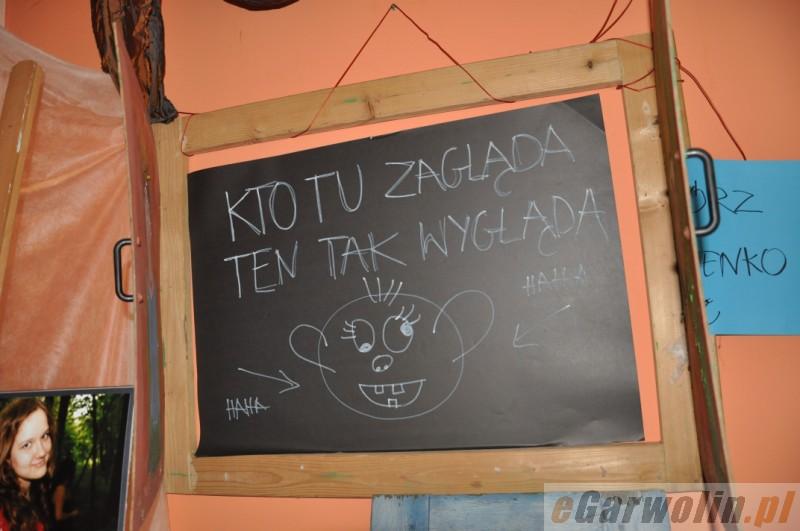 KTO TU ZAGLĄDA
TEN TAK WYGLĄDA
HAHHA
HAHA
ENKO
eGarwolin.pl